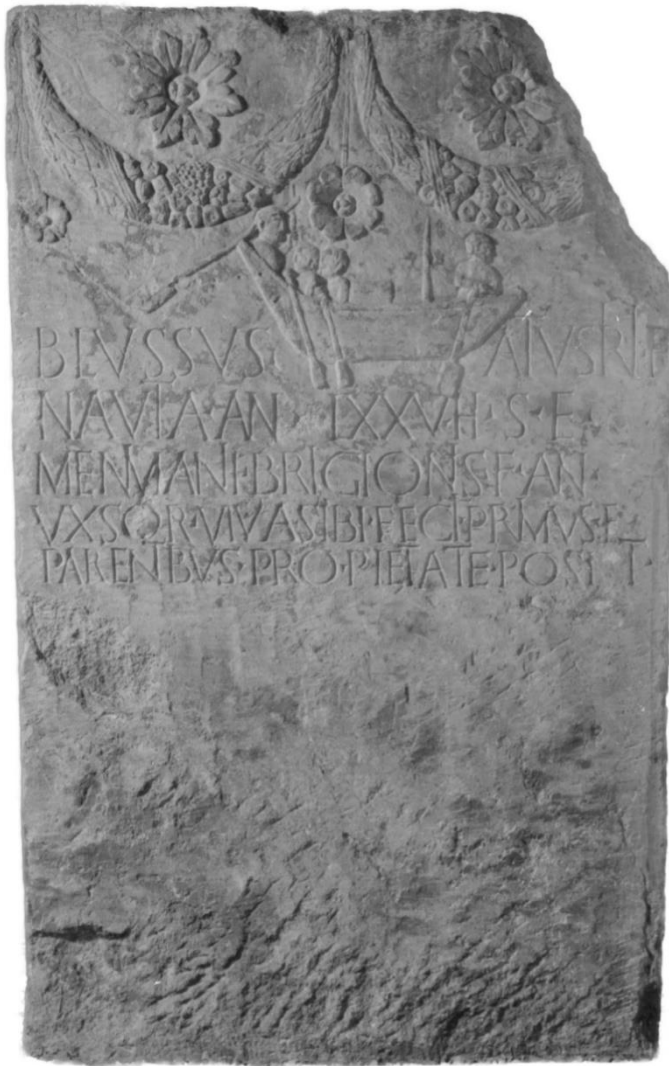 BLVSSVS ATVSIRI F
NAVTA AN LXXV H S E
MENIMANE BRIGIONIS F AN
VXSOR VIVA SIBI FECIT PRIMVS F
PARENTIBVS PRO PIETATE POSIT